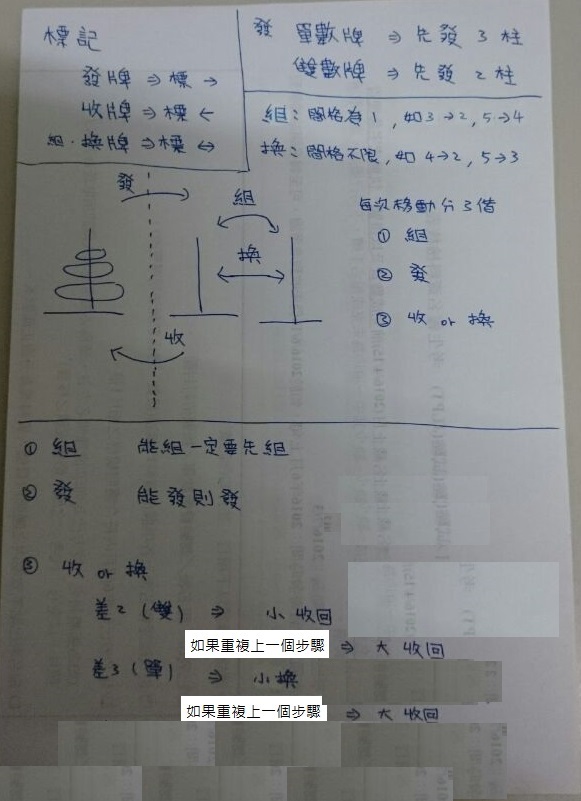 標記
發牌 ⇒ 標 →
收牌 ⇒ 標 ←
組·換牌 ⇒ 標 ↔
發 單數牌 ⇒ 先發 3 柱
雙數牌 ⇒ 先發 2 柱
組: 間格為 1, 如 3→2, 5→4
換: 間格不限, 如 4→2, 5→3
發
組
換
收
每次移動分 3 階
① 組
② 發
③ 收 or 換
① 組 能組一定要先組
② 發 能發則發
③ 收 or 換
差2 (雙) ⇒ 小收回
如果重複上一個步驟 ⇒ 大收回
差3 (單) ⇒ 小換
如果重複上一個步驟 ⇒ 大收回